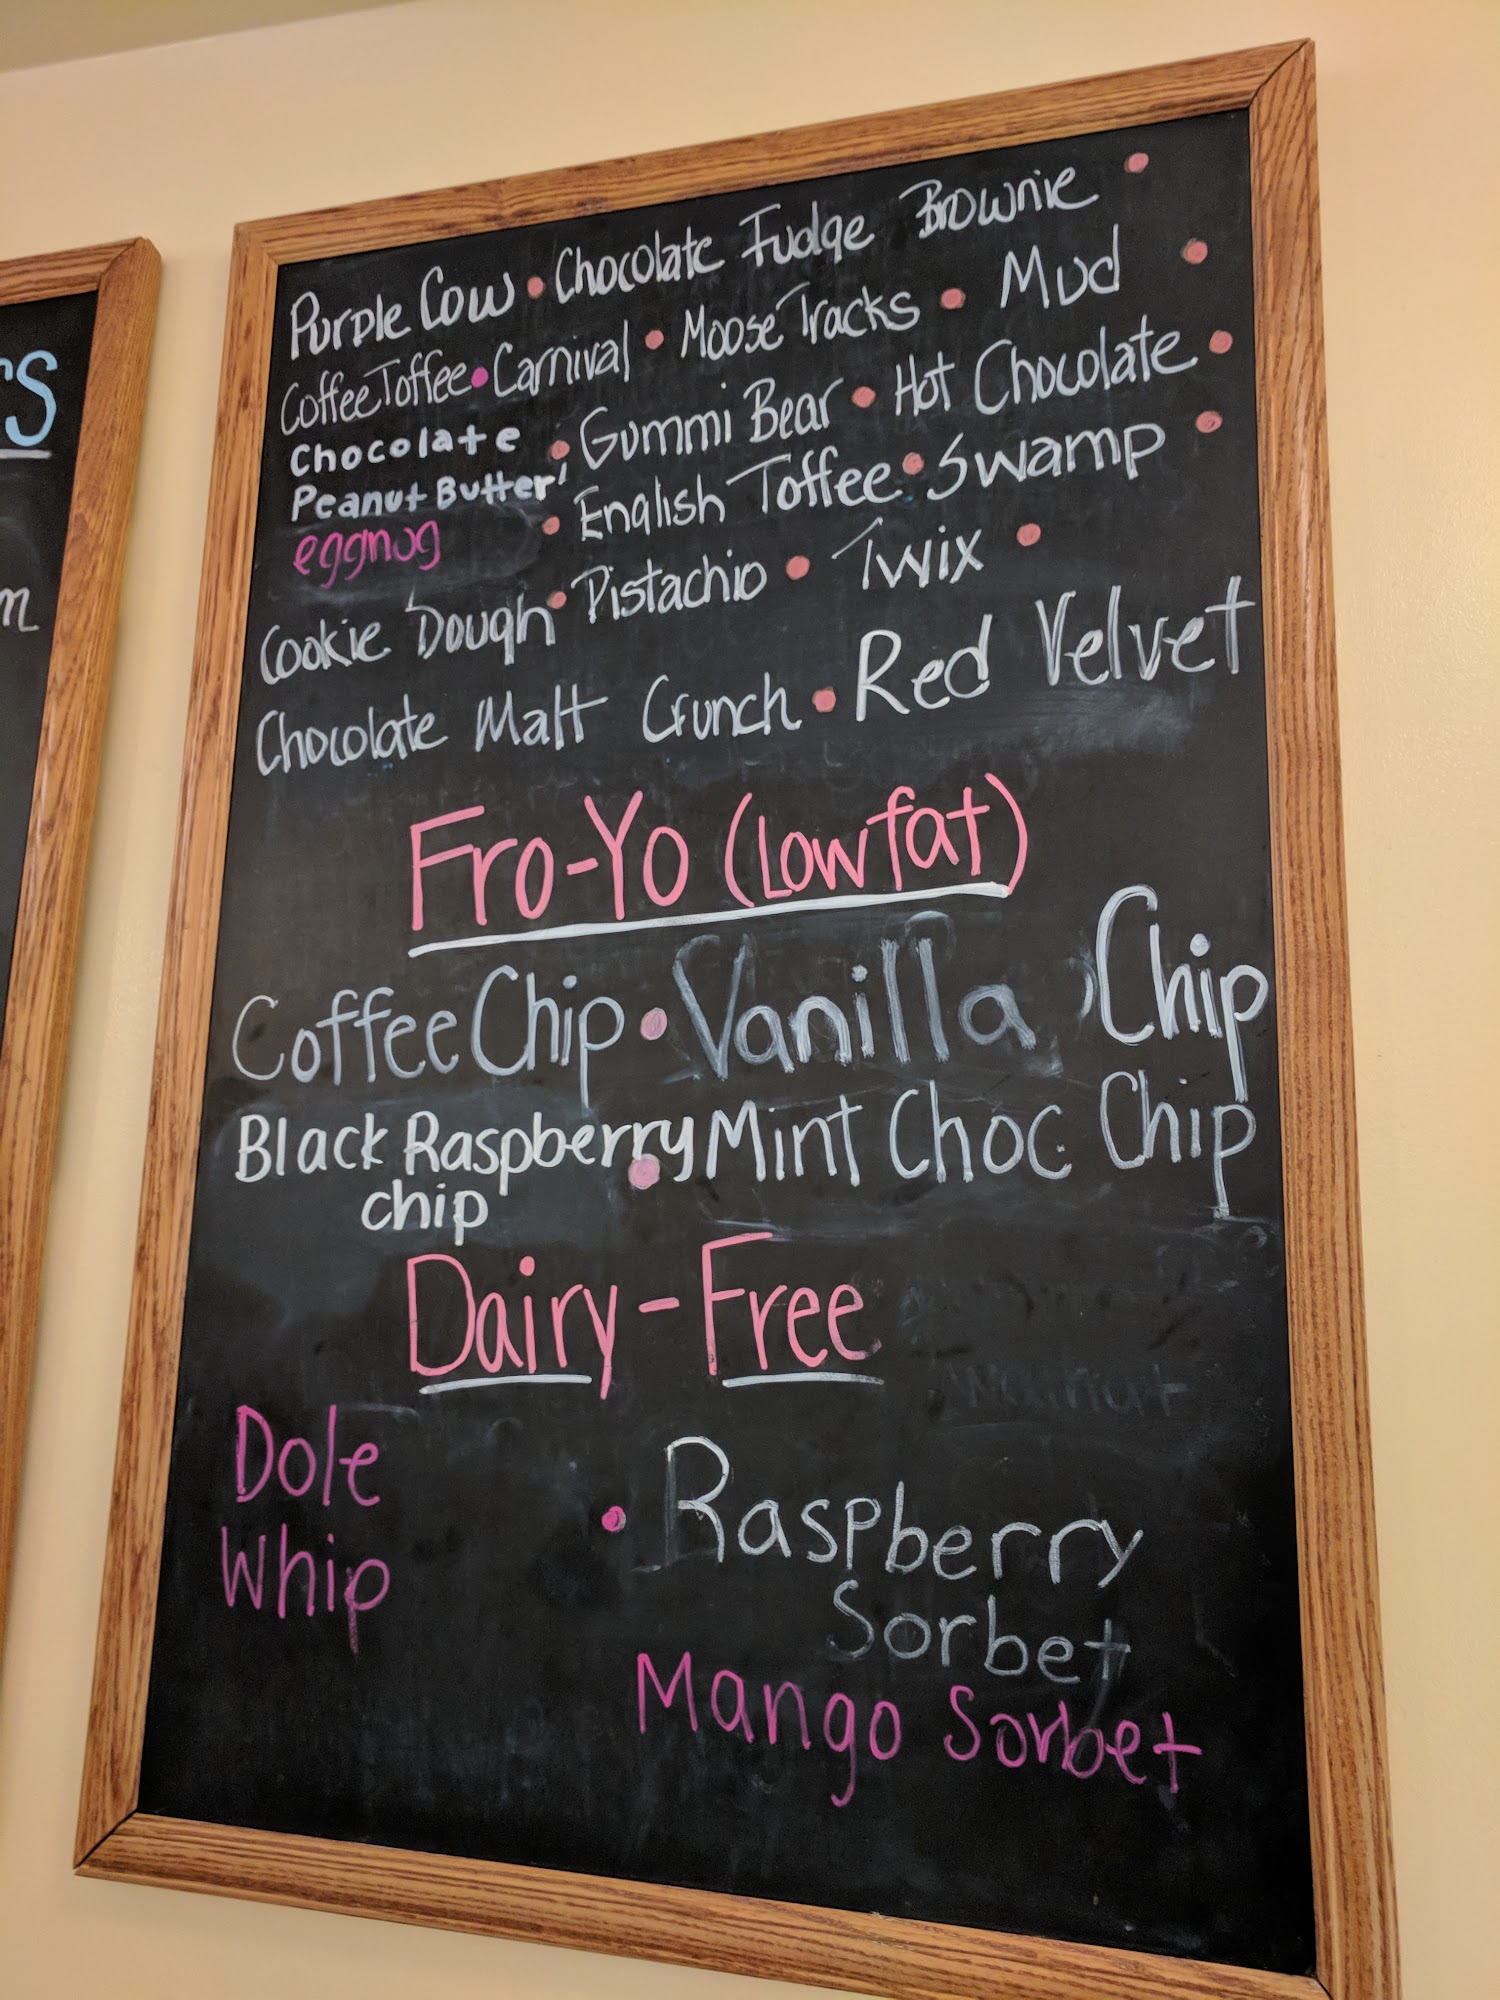 rs
m
Purple Cow • Chocolate Fudge Brownie •
Coffee Toffee • Carnival • Moose Tracks • Mud •
Chocolate
Peanut Butter • Gummi Bear • Hot Chocolate •
eggnog • English Toffee • Swamp •
Cookie Dough • Pistachio • Twix •
Chocolate Malt Crunch • Red Velvet
Fro-Yo (Lowfat)
Coffee Chip • Vanilla Chip
Black Raspberry • Mint Choc Chip
chip
Dairy-Free
Dole
Whip
• Raspberry
Sorbet
Mango Sorbet